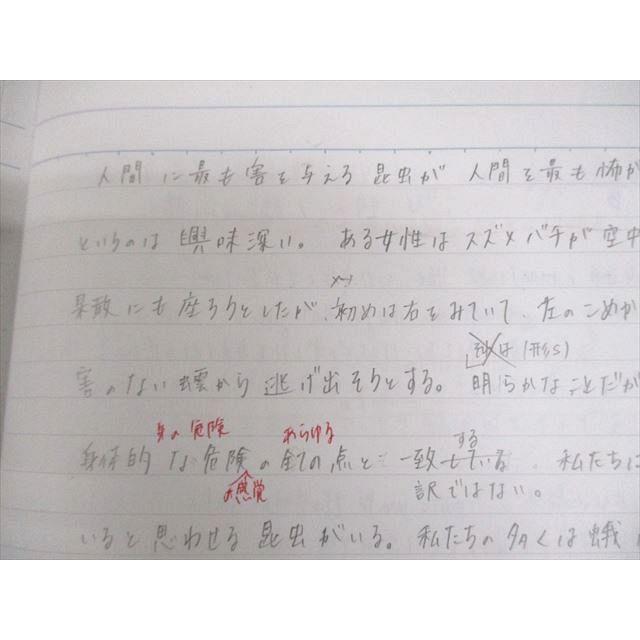 人間に最も害を与える昆虫が 人間を最も怖が
というのは興味深い。 ある女性はスズメバチが空中
果敢にも座ろうとしたが、初めは右をみていて、左のこめか
それは(形S)
害のない蝶から逃げ出そうとする。 明らかなことだが
身の危険 あらゆる
する
身体的な危険の全ての点と一致している 、私たちに
の感覚
訳ではない。
いると思わせる昆虫がいる。 私たちの多くは蛾